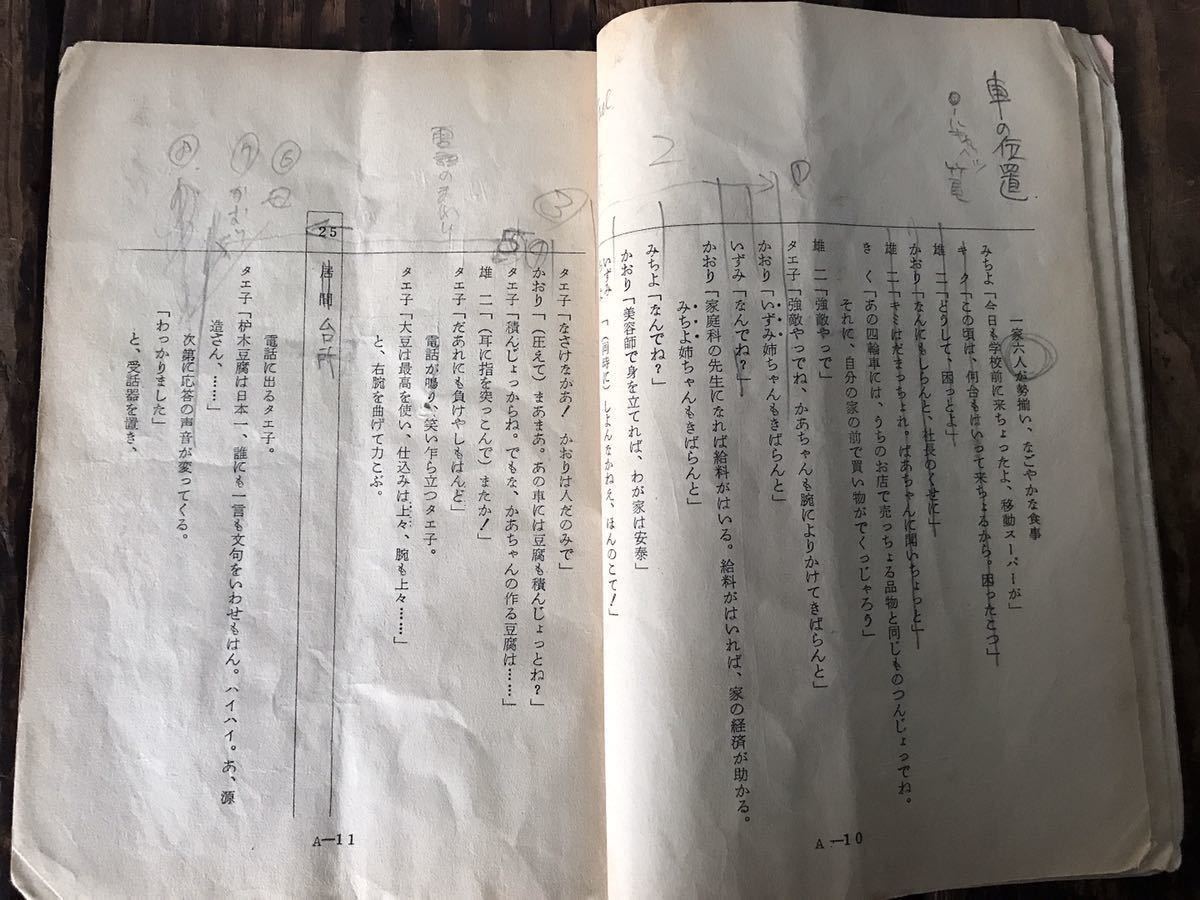 車の位置
一家六人が勢揃い、なごやかな食事
みちよ「今日も学校前に来ちょったよ、移動スーパーが」
キク「この頃は、何台もはいって来ちょるから。困ったこつ」
雄二「どうして、困っとよ」
かおり「なんにもしらんと、社長のくせに」
雄二「キミはだまっちょれ。ばあちゃんに聞いちょっと」
きく「あの四輪車には、うちのお店で売っちょる品物と同じものつんじょってね。
それに、自分の家の前で買い物がでくっじゃろう」
雄二「強敵やっで」
タエ子「強敵やってね、かあちゃんも腕によりかけてきばらんと」
かおり「いずみ姉ちゃんもきばらんと」
いずみ「なんでね?」
かおり「家庭科の先生になれば給料がはいる。給料がはいれば、家の経済が助かる。
みちよ姉ちゃんもきばらんと」
みちよ「なんでね?」
かおり「美容師で身を立てれば、わが家は安泰」
いずみ
「(同時に)しよんなかねえ、ほんのこて!」
①
2
A—10
タエ子「なさけなかあ! かおりは人だのみで」
かおり「(圧えて)まあまあ。あの車には豆腐も積んじょっとね?」
タエ子「積んじょっからね。でもな、かあちゃんの作る豆腐は……」
雄二「(耳に指を突っこんで)またか!」
タエ子「だあれにも負けやしもはんど」
電話が鳴り、笑い乍ら立つタエ子。
タエ子「大豆は最高を使い、仕込みは上々、腕も上々……」
と、右腕を曲げて力こぶ。
電話のまわり
25
居間台所
電話に出るタエ子。
タエ子「枦木豆腐は日本一、誰にも一言も文句をいわせもはん。ハイハイ。あ、源
造さん、……」
次第に応答の声音が変ってくる。
「わっかりました」
と、受話器を置き、
⑥
⑦
⑧
A—11